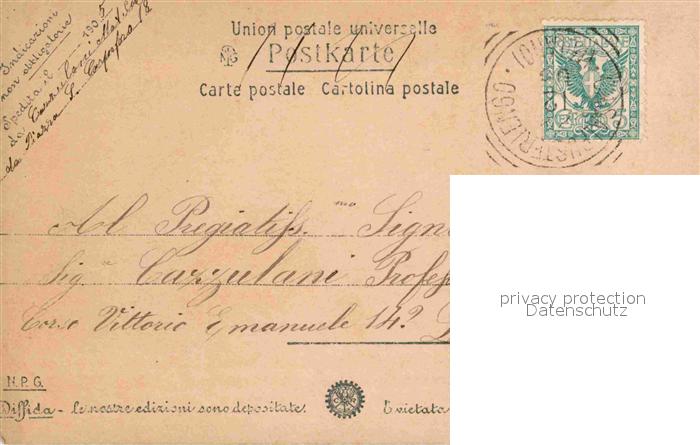 Indicazioni
non obbligatorie
Spedita il 1905
da
da Piazza S.
Union postale universelle
Postkarte
Carte postale Cartolina postale
Al Pregiatiss.mo Sign
Sig. Cazzulani Profes
Corso Vittorio Emanuele 14º
privacy protection
Datenschutz
N.P.G.
Diffida - Le nostre edizioni sono depositate. È vietata